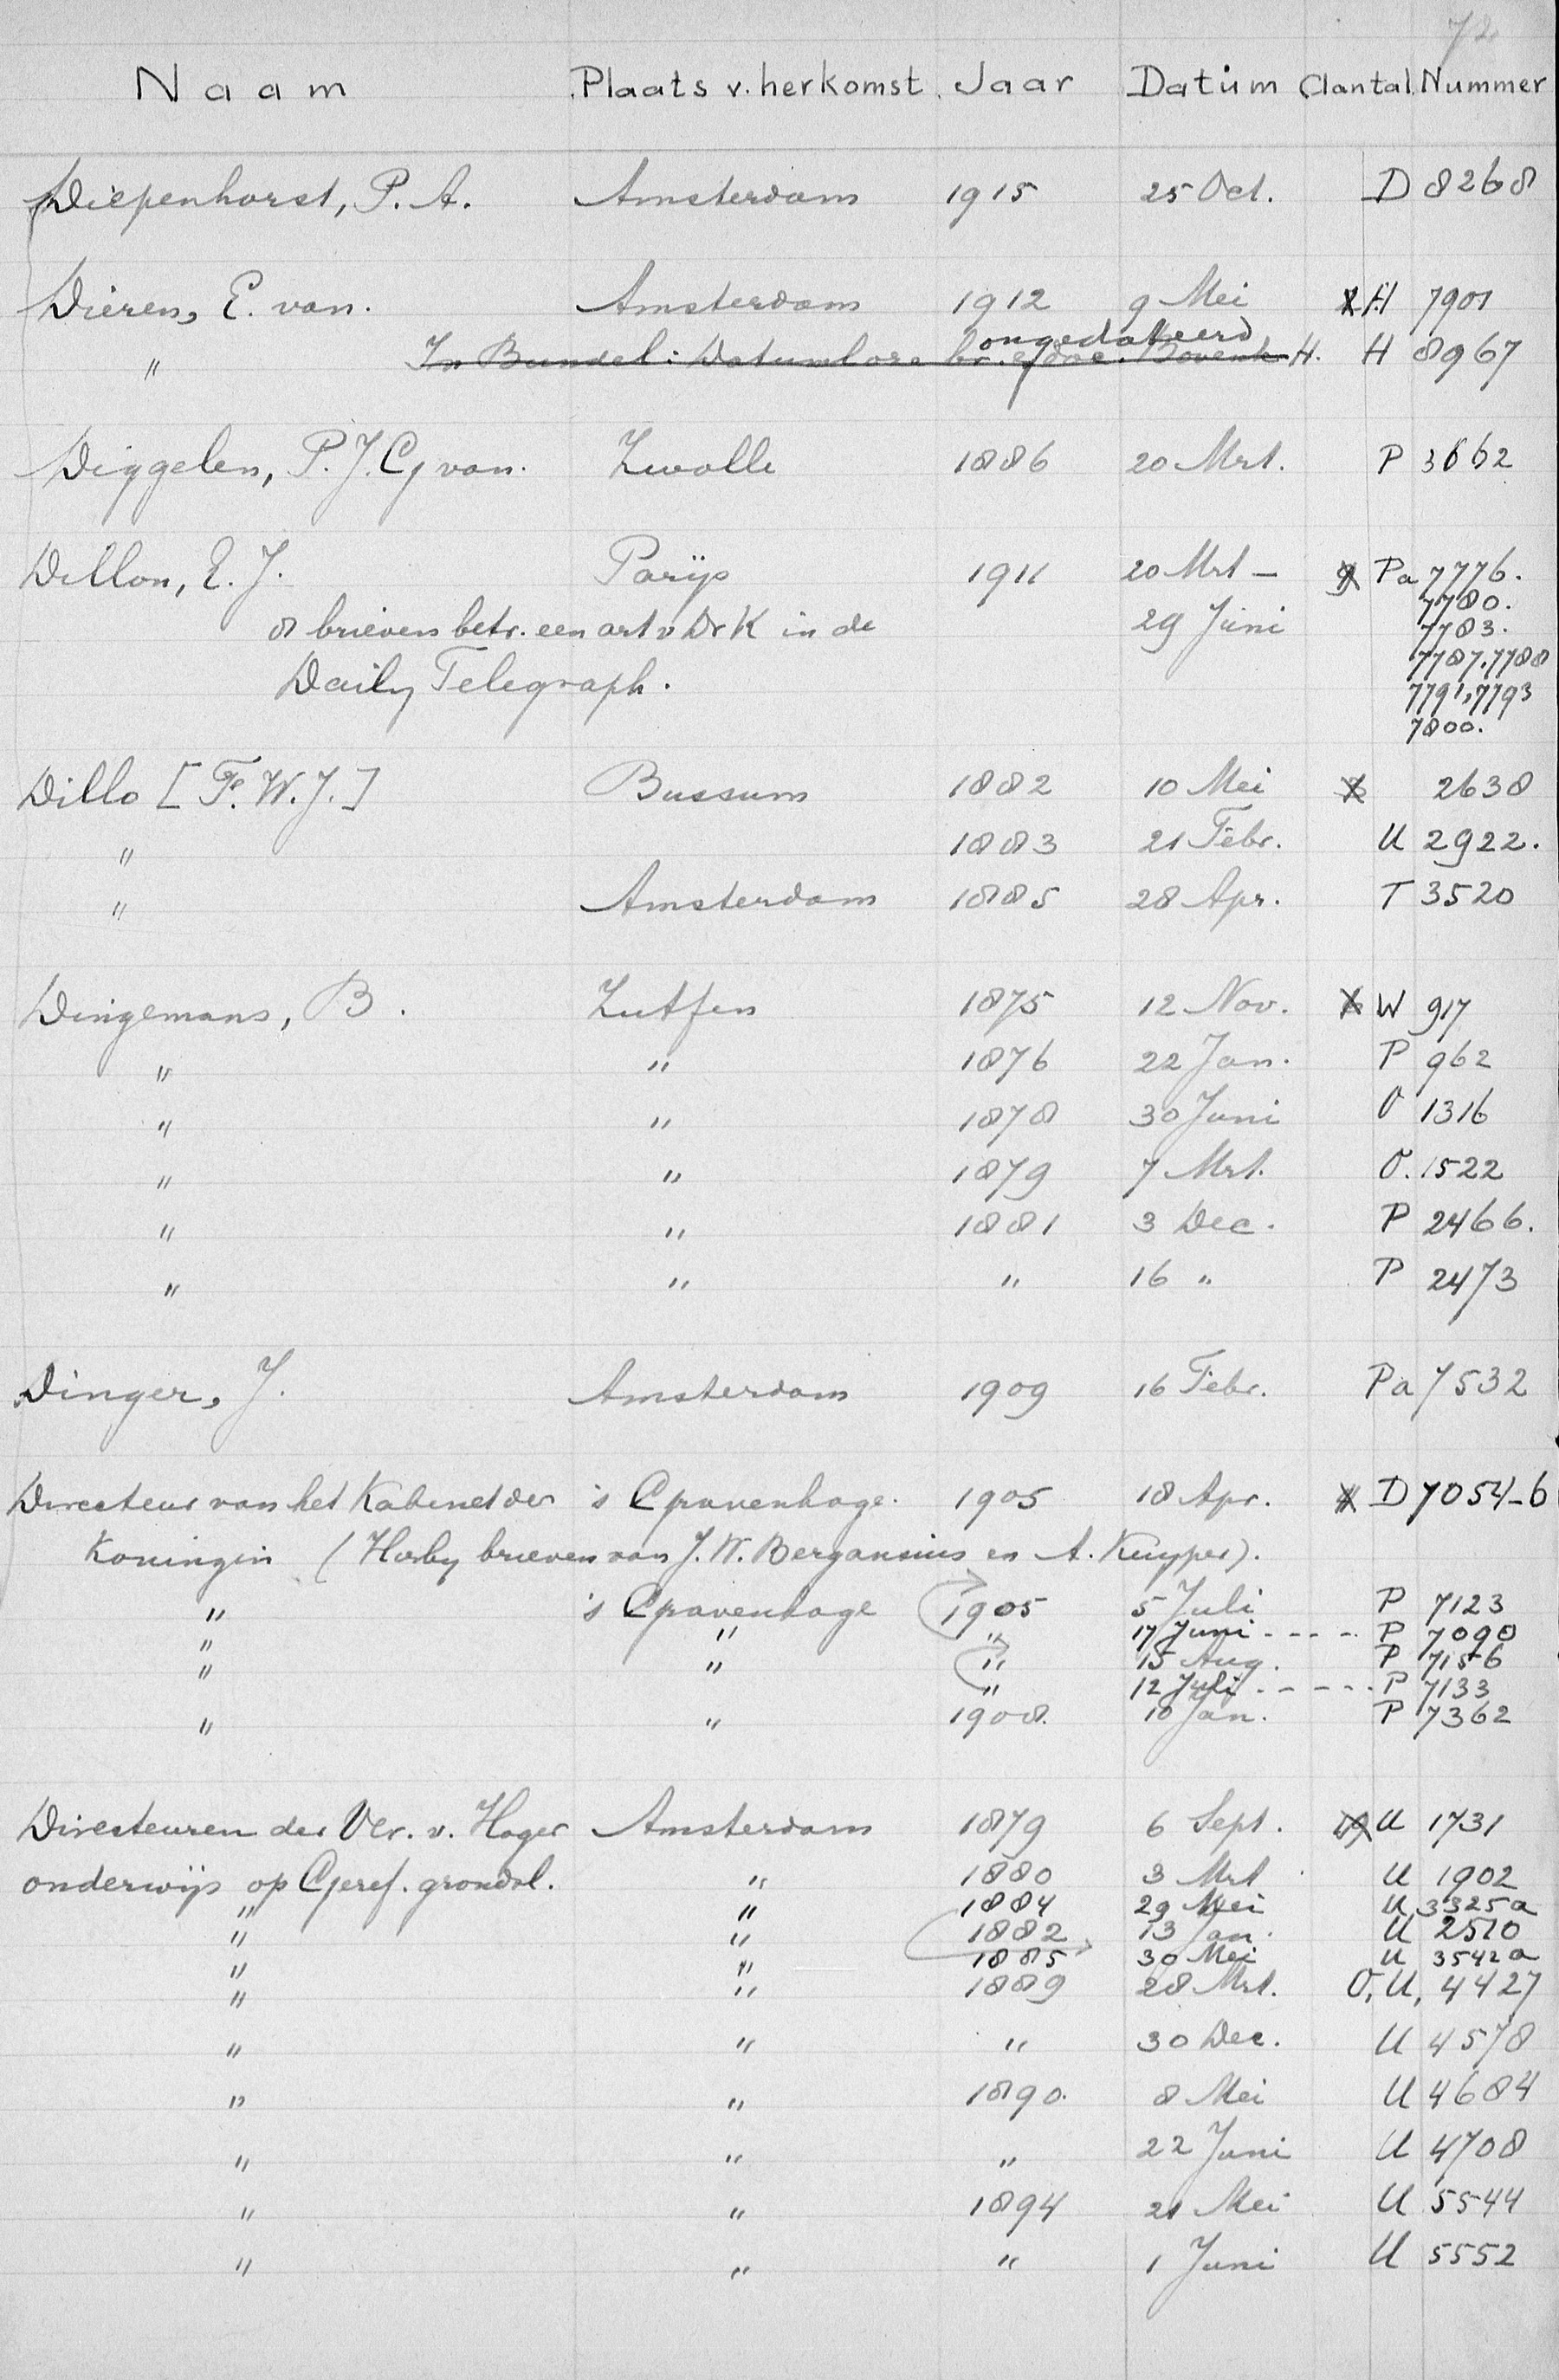 72
Naam Plaats v. herkomst. Jaar Datum Aantal Nummer
Diepenhorst, P. A. Amsterdam 1915 25 Oct. D 8268
Dieren, E. van. Amsterdam 1912 9 Mei H 7901
ongedateerd
" In Bundel: Datumlose br. e/doc. Bovenk. H. H 8967
Diggelen, P. J. G. van. Zwolle 1886 20 Mrt. P 3662
Dillon, E. J. Parijs 1911 20 Mrt - Pa 7776.
7780.
8 brieven betr. een art v Dr K in de 29 Juni 7783.
7787, 7788
Daily Telegraph. 7791, 7793
7800.
Dillo [F. W. J.] Bussum 1882 10 Mei 2638
" 1883 21 Febr. U 2922.
" Amsterdam 1885 28 Apr. T 3520
Dingemans, B. Zutfen 1875 12 Nov. W 917
" " 1876 22 Jan. P 962
" " 1878 30 Juni O 1316
" " 1879 7 Mrt. O. 1522
" " 1881 3 Dec. P 2466.
" " " 16 " P 2473
Dinger, J. Amsterdam 1909 16 Febr. Pa 7532
Directeur van het Kabinet der 's Gravenhage. 1905 18 Apr. D 7054-6
Koningin (Hierby brieven van J. W. Bergansius en A. Kuyper).
" 's Gravenhage 1905 5 Juli P 7123
" " " 17 Juni - - - - P 7090
" " " 15 Aug. P 7156
" 12 Juli - - - - - P 7133
" " 1908. 10 Jan. P 7362
Directeuren der Ver. v. Hoger Amsterdam 1879 6 Sept. U 1731
onderwijs op Geref. grondsl. " 1880 3 Mrt U 1902
" " 1884 29 Mei U 3325a
" " 1882 13 Jan. U 2510
" " 1885 30 Mei U 3542a
" " 1889 28 Mrt. O, U, 4427
" " " 30 Dec. U 4578
" " 1890. 8 Mei U 4684
" " " 22 Juni U 4708
" " 1894 21 Mei U 5544
" " " 1 Juni U 5552